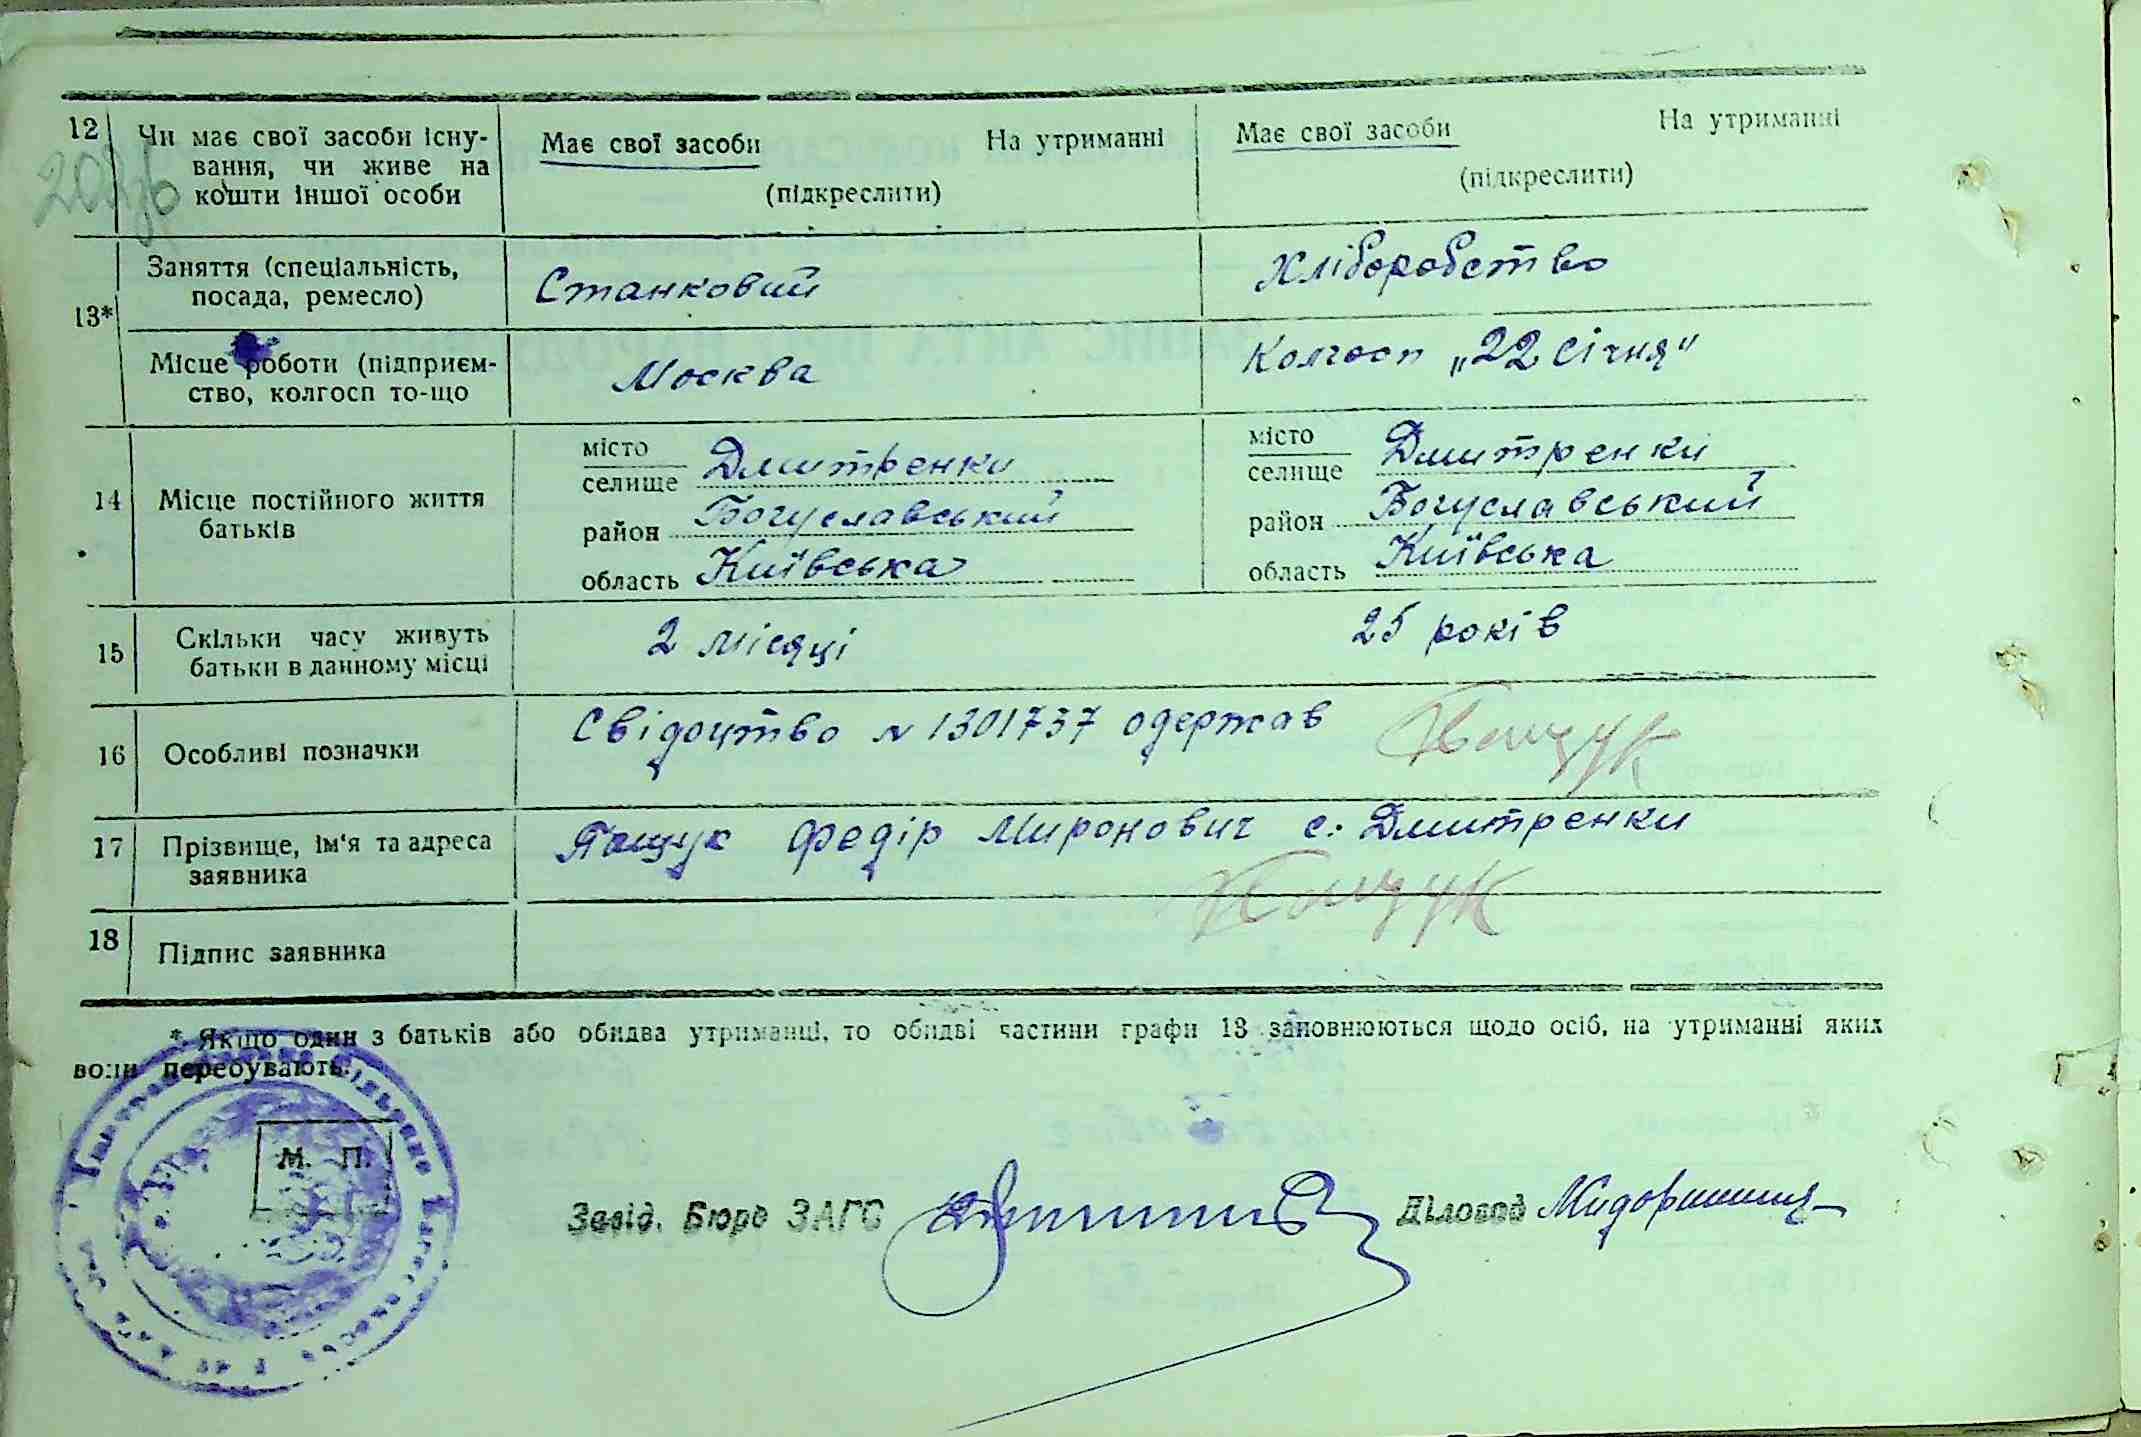 12 Чи має свої засоби існу- Має свої засоби На утриманні Має свої засоби На утриманні
вання, чи живе на
кошти іншої особи (підкреслити) (підкреслити)
13* Заняття (спеціальність, Станковий Хліборобство
посада, ремесло)
Місце роботи (підприєм- Москва Колгосп „22 Січня"
ство, колгосп то-що
14 Місце постійного життя місто Дмитренки місто Дмитренки
батьків селище селище
район Богуславський район Богуславський
область Київська область Київська
15 Скільки часу живуть 2 місяці 25 років
батьки в данному місці
16 Особливі позначки Свідоцтво N 1301737 одержав
17 Прізвище, ім'я та адреса Федір Миронович с. Дмитренки
заявника
18 Підпис заявника
* Якщо один з батьків або обидва утриманці, то обидві частини графи 13 заповнюються щодо осіб, на утриманні яких
вони перебувають.
М. П.
Завід. Бюро ЗАГС Діловод